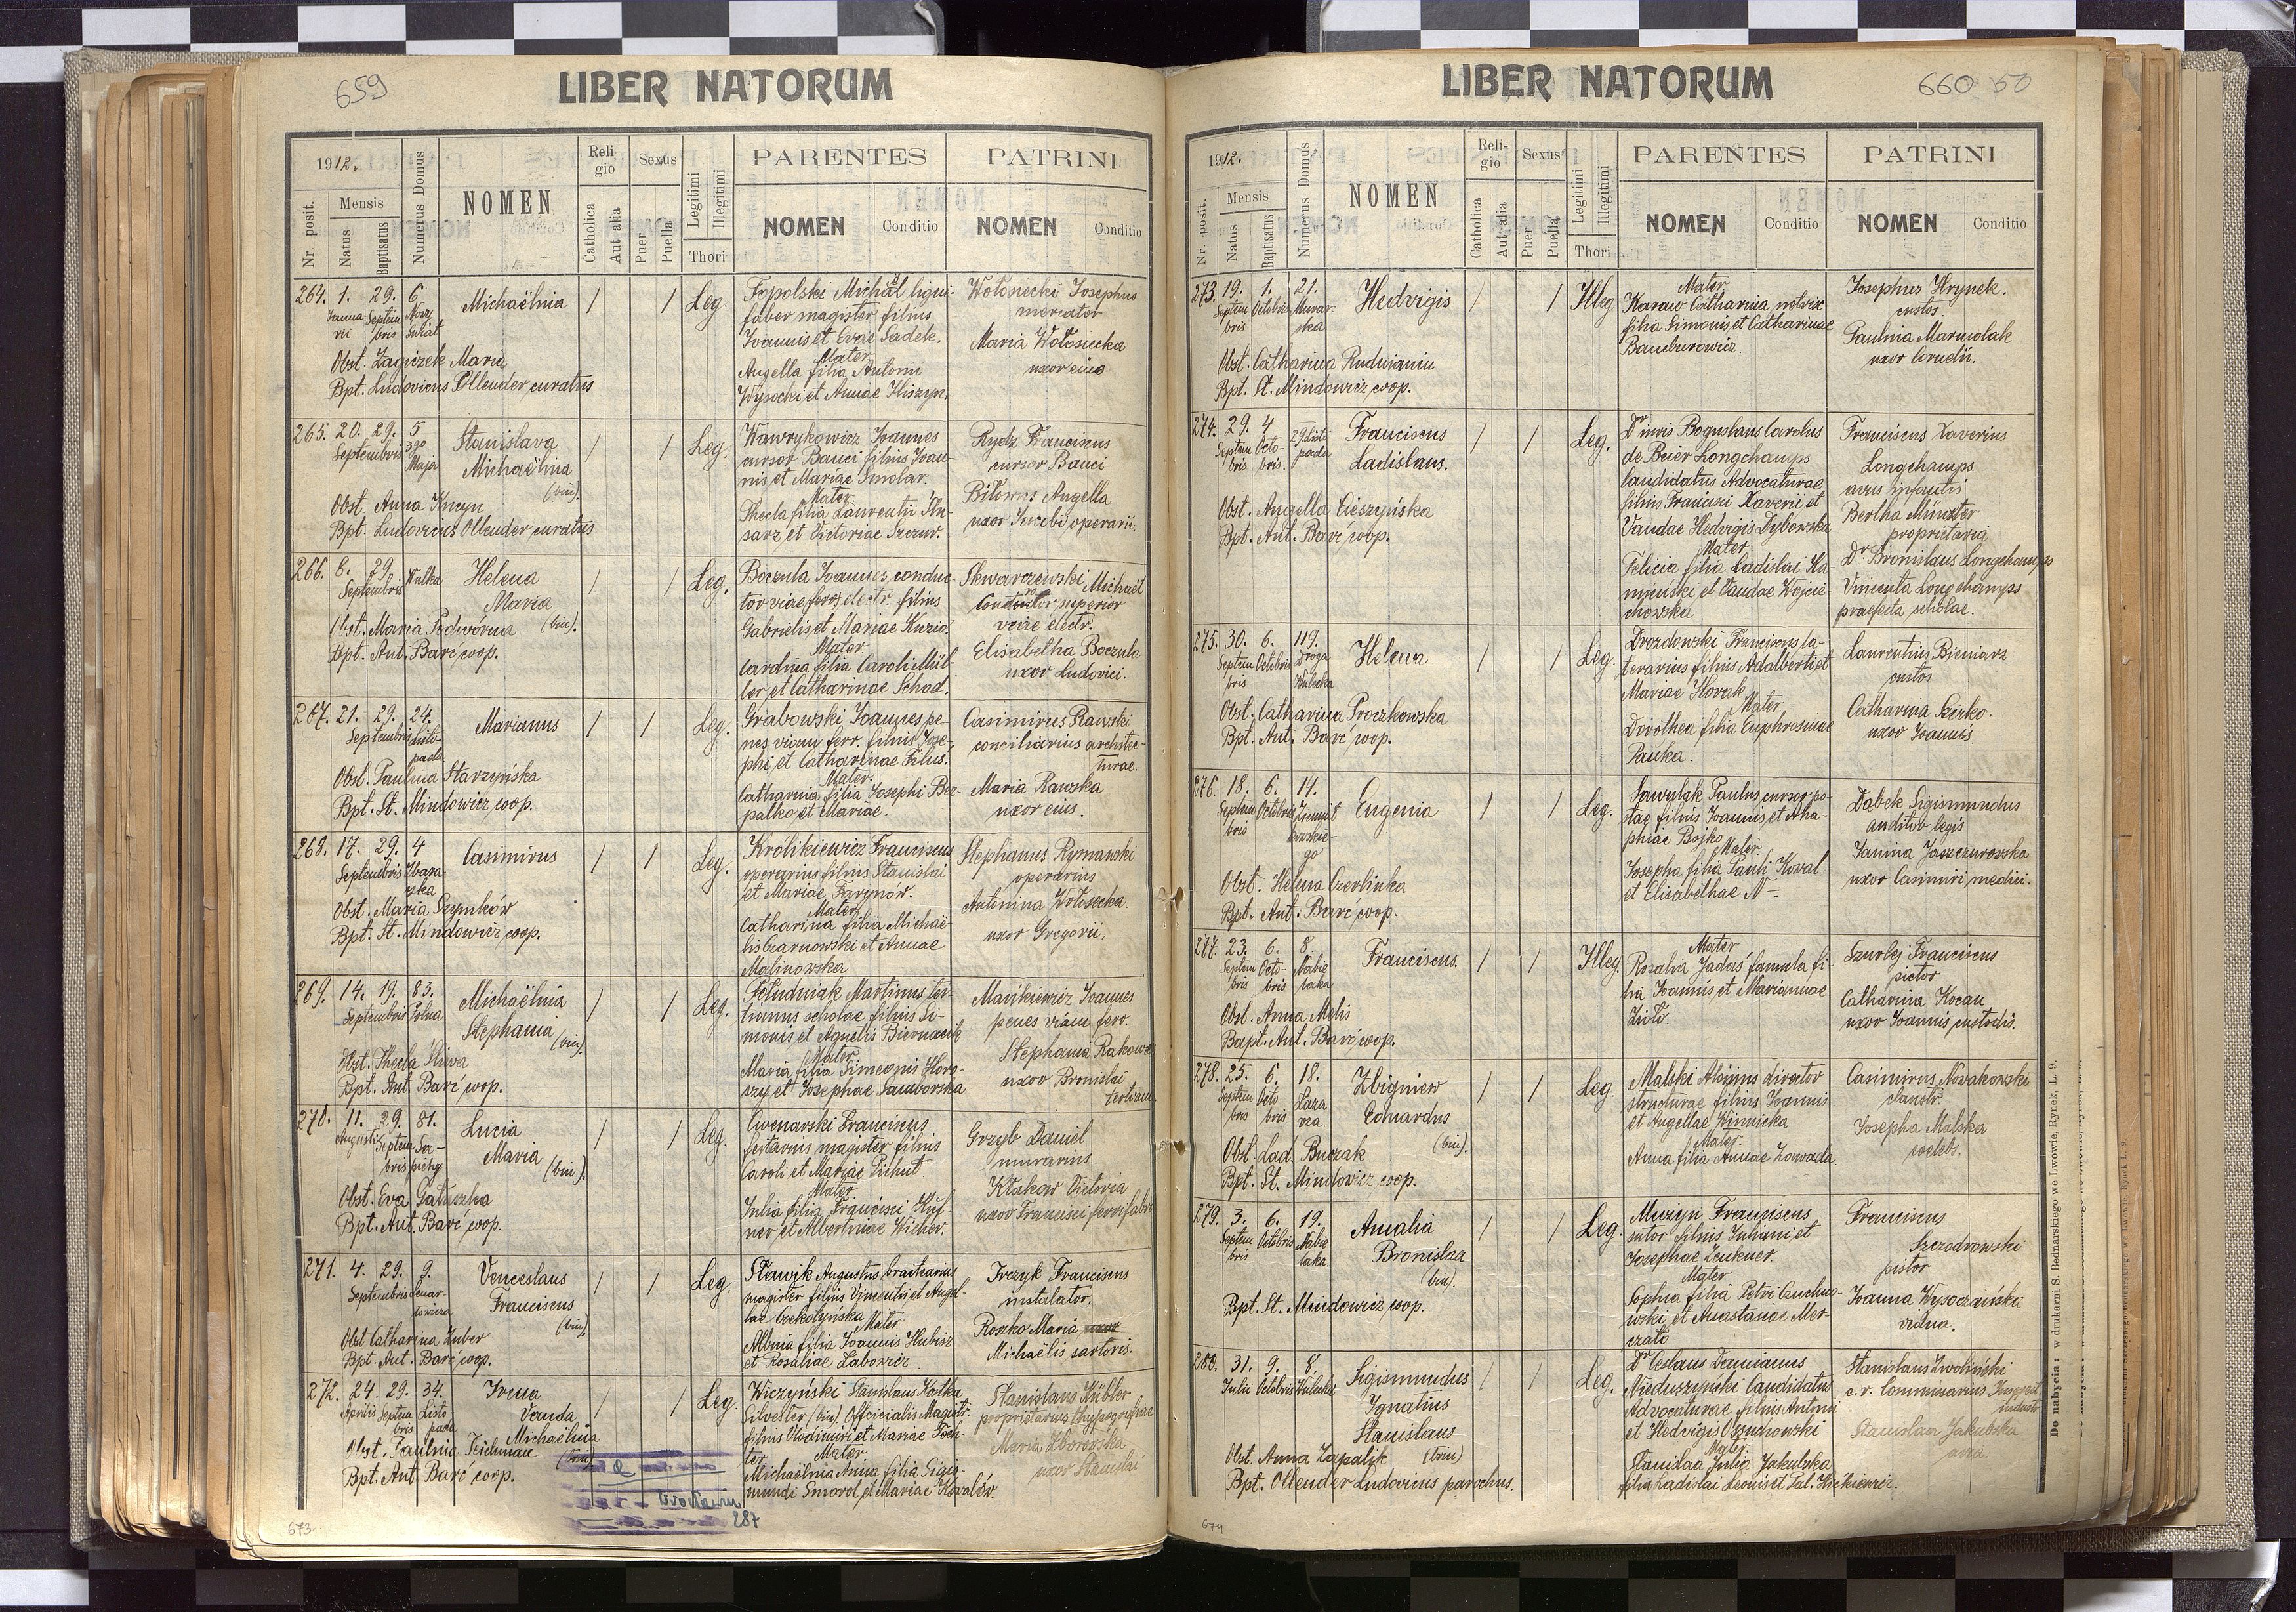 659
LIBER NATORUM
1912.
Nr. posit.
Mensis
Natus
Baptisatus
Numerus Domus
NOMEN
Religio
Catholica
Aut alia
Sexus
Puer
Puella
Legitimi
Illegitimi
Thori
PARENTES
NOMEN
Conditio
PATRINI
NOMEN
Conditio
264. 1. 29. 6
Michaëlina
Leg.
Obst. Zagiczek Maria
Bpt. Ludovicus Ollender curatus
Topolski Michaël ligni-
faber magister filius
Joannis et Evae Sadek.
Mater
Angella filia Antonii
Wysocki et Annae
Wołosiecki Josephus
mercator
Maria Wołosiecka
uxor eius
265. 20. 29. 5
Septembris 3go Maja
Stanislava
Michaëlina
(bin).
Leg.
Obst. Anna Kncyn
Bpt. Ludovicus Ollender curatus
Wawrykowicz Joannes
cursor Banci filius Joan-
nis et Mariae Smolar.
Mater
Thecla filia Laurentii Śln-
sarz et Victoriae Szczur.
Rydz Franciscus
cursor Banci
Angella
uxor Jacobi operarii
266. 8. 29. Wulka
Septembris
Helena
Maria
(bin).
Leg.
Obst. Maria Podwórna
Bpt. Ant. Barć coop.
Boczula Joannes, conduc-
tor viae electr. filius
Gabrielis et Mariae Kuzio.
Mater
Carolina filia Caroli Mül-
ler et Catharinae Schad.
Skwarczewski Michaël
Conductor superior
viae electr.
Elisabetha Boczula
uxor Ludovici.
267. 21. 29. 24.
Septembris Listo-
pada
Marianus
Leg.
Obst. Paulina Starzyńska
Bpt. St. Mindowicz coop.
Grabowski Joannes pe-
nes viam ferr. filius Jose-
phi et Catharinae Filus.
Mater.
Catharina filia Josephi Bez-
palko et Mariae.
Casimirus Rawski
conciliarius architec-
turae.
Maria Rawska
uxor eius.
268. 17. 29. 4
Septembris Zbara
zka
Casimirus
Leg.
Obst. Maria Szymków
Bpt. St. Mindowicz coop.
Królikiewicz Franciscus
operarius filius Stanislai
et Mariae Farynów.
Mater
Catharina filia Michaë-
lis Czarnowski et Annae
Malinowska
Stephanus Rymawski
operarius
Antonina Wołosecka.
uxor Gregorii.
269. 14. 19. 83.
Septembris Polna
Michaëlina
Stephania
(bin).
Leg.
Obst. Thecla Śliwa
Bpt. Ant. Barć coop.
Południak Martinus ter-
tianus scholae filius Si-
monis et Agnetis
Mater
Maria filia Simeonis Horo-
szy et Josephae Samborska
Mańkiewicz Joannes
penes viam ferr.
Stephania
uxor Bronislai
270. 11. 29. 81.
Augusti Septem Sa-
bris piehy
Lucia
Maria
(bin).
Leg.
Obst. Eva Gałuszka
Bpt. Ant. Barć coop.
Cwenarski Franciscus
magister filius
Caroli et Mariae Pichut
Mater
Julia filia Francisci Huf-
ner et Albertinae Wicher.
Grzyb Daniel
murarius
Kłakow Victoria
uxor Francisci ferri fabri
271. 4. 29. 9.
Septembris Lenar-
towicza
Venceslaus
Franciscus
(bin).
Leg.
Obst Catharina Zuber
Bpt. Ant. Barć coop.
Sławik Augustus
magister filius Vincentii et Angel-
lae
Mater
Albina filia Joannis Hubisz
et Rosaliae Zabowicz
Irczyk Franciscus
instalator.
Roszko Maria
Michaëlis sartoris.
272. 24. 29. 34.
Aprilis Septem Listo
bris pada
Irena
Vanda
Michaëlina
(trin)
Leg.
Obst. Paulina
Bpt. Ant Barć coop.
Wiczyński Stanislaus Kostka
Silvester (bin). Officialis Magistr.
filius Vlodimiri et Mariae Foch-
ter
Mater
Michaëlina Anna filia Sigis-
mundi Smorol et Mariae Kovalóv.
Stanislaus Kübler
proprietarius thypografiae
Maria Zborowska
uxor Stanislai
287
673
LIBER NATORUM
660 50
1912.
Nr. posit.
Mensis
Natus
Baptisatus
Numerus Domus
NOMEN
Religio
Catholica
Aut alia
Sexus
Puer
Puella
Legitimi
Illegitimi
Thori
PARENTES
NOMEN
Conditio
PATRINI
NOMEN
Conditio
273. 19. 1. 21.
Septem Octobris Murar-
bris ska
Hedvigis
Illeg
Obst. Catharina Rudnianin
Bpt. St. Mindowicz coop.
Mater
Karaw Catharina nutrix
filia Simonis et Catharinae
Bamburowicz.
Josephus Hrynek.
custos.
Paulina Marmolak
uxor Cornelii.
274. 29. 4 29 Listo
Septem Octo- pada
bris bris.
Franciscus
Ladislaus.
Leg.
Obst. Angella Cieszyńska
Bpt. Ant. Barć coop.
Dr iuris Boguslaus Carolus
de Beier Longchamps
Candidatus Advocaturae
filius Francisci Xaverii et
Vandae Hedvigis Dybowska
Mater
Felicia filia Ladislai Ka-
minski et Vandae Wojcie-
chowska
Franciscus Xaverius
Longchamps
avus infantis
Bertha Münster
proprietaria
Dr Bronislaus Longchamps
Vincenta Longchamps
praefecta scholae.
275. 30. 6. 119.
Septem Octobris Droga
bris Wulecka
Helena
Leg.
Obst. Catharina Proczkowska
Bpt. Ant. Barć coop.
Drozdowski Franciscus la-
terarius filius Adalberti et
Mariae Horak
Mater
Dorothea filia Euphrosinae
Pauka.
Laurentius Bieniarz
custos
Catharina Szirko.
uxor Joannis
276. 18. 6. 14.
Septem Octobris
bris
Eugenia
Leg.
Obst. Helena Czerlinka
Bpt. Ant. Barć coop.
Sawulak Paulus cursor po-
stae filius Joannis et Aha-
phiae Bojko
Mater.
Josepha filia Pauli Kowal
et Elisabethae N-
Dabek Sigismundus
auditor legis
Janina Jaszczurowska
uxor Casimiri medici.
277. 23. 6. 8.
Septem Octo- Nabie
bris bris laka
Franciscus.
Illeg.
Obst. Anna Melis
Bapt. Ant. Barć coop.
Mater
Rosalia Jadaś famula fi-
lia Joannis et Mariannae
Zioło.
Szurlej Franciscus
pictor
Catharina Kocan
uxor Joannis custodis.
278. 25. 6. 18.
Septem Octo Łaza
bris bris rza.
Zbigniew
Eduardus
(bin).
Leg.
Obst. Lad. Buczak
Bpt. St. Mindowicz coop.
Malski Aloisius director
structurae filius Joannis
et Angellae Winnicka
Mater.
Anna filia Annae Zawada.
Casimirus Novakowski
Josepha Malska
coelebs.
279. 3. 6. 19.
Septem Octobris Nabie
bris laka.
Amalia
Bronislaa
bin).
Leg.
Bpt. St. Mindowicz coop.
Muzyn Franciscus
sutor filius Juliani et
Josephae Zeukner.
Mater
Sophia filia Petri Cuchno-
wski et Anastasiae Mer-
czalo
Franciscus
Szczodrowski
pistor
Joanna Wysoczańska
vidua.
280. 31. 9. 8.
Julii Octobris Wulecka
Sigismundus
Ignatius
Stanislaus
(trin)
Leg.
Obst. Anna Zapalik
Bpt. Ollender Ludovicus parochus.
Dr Ceslaus Damianus
Nieduszyński Candidatus
Advocaturae filius Antonii
et Hedvigis
Mater
Stanislaa Julia Jakubska
filia Ladislai Leonis et Sal. Hickiewicz.
Stanislaus Zwoliński
c. r. Commissarius
Stanislaa Jakubska
avia.
Do nabycia: w drukarni S. Bednarskiego we Lwowie, Rynek, L. 9.
674